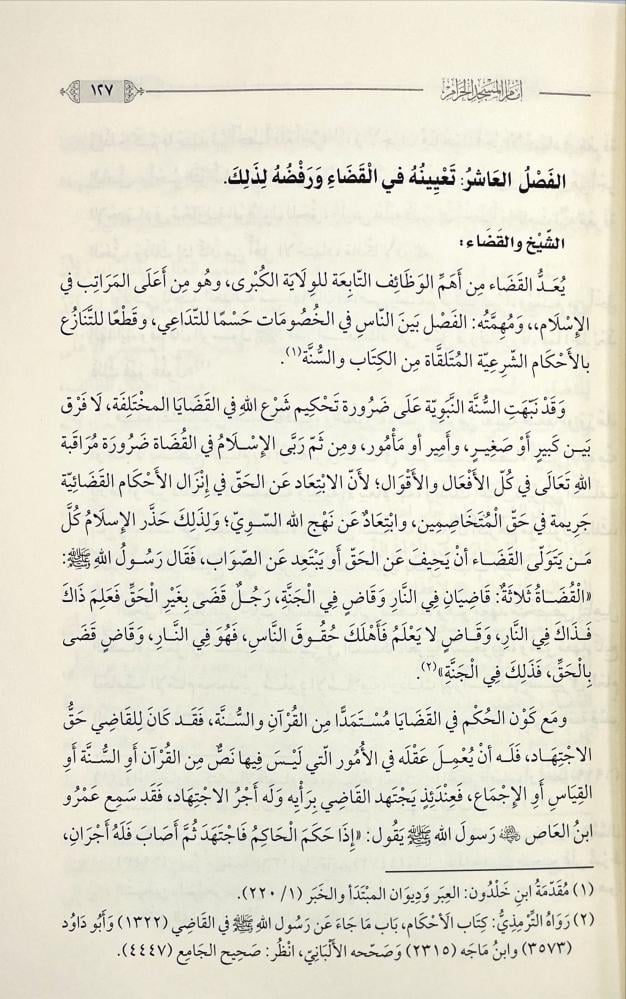 إمام المسجد الحرام
١٢٧
الفَصْلُ العَاشرُ: تَعْيِينُهُ في الْقَضَاءِ وَرَفْضُهُ لِذَلِكَ.
الشَّيْخ والقَضَاء:
يُعَدُّ القَضَاء مِن أَهَمِّ الوَظَائف التَّابِعَة للوِلَايَة الكُبْرى، وهُو مِن أَعَلَى المَرَاتِب في
الإسْلَام،، ومُهِمَّتُه: الفَصْل بَينَ النَّاسِ في الخُصُومَات حَسْمًا للتَّدَاعِي، وقَطْعًا للتَّنَازُع
بالأحْكَام الشَّرعِيَّة المُتَلقَّاة مِن الكِتَاب والسُّنَّة(١).
وَقَد نَبَّهَتِ السُّنَّة النَّبَوِيَة عَلَى ضَرُورة تَحْكِيم شَرْع اللهِ في القَضَايا المخْتَلِفَة، لَا فَرْق
بَيـن كَبيرٍ أَوْ صَغِيـرٍ، وأَمِير أو مَأْمُور، ومِن ثَمّ رَبَّى الإِسْلَامُ في القُضَاة ضَرُورَة مُرَاقَبة
اللهِ تَعَالَى في كُلّ الأَفْعَال والأَقْوَال؛ لأَنّ الابْتِعَاد عَن الحَقّ في إنْزَال الأَحْكَام القَضَائِيَّة
جَرِيمة في حَقّ الْمُتَخَاصِمِين، وابْتِعَادٌ عَن نَهْج الله السَّوِيّ؛ وَلِذَلِكَ حَذَّر الإسْلَامُ كُلَّ
مَـن يَتَولَّى القَضَـاء أنْ يَحِيفَ عَـن الحَقّ أَو يَبْتَعِد عَن الصَّوَاب، فَقَال رَسُـولُ اللهِ ﷺ:
«الْقُضَـاةُ ثَلَاثَةٌ: قَاضِيَانِ فِي النَّارِ وَقَاضٍ فِي الْجَنَّةِ، رَجُـلٌ قَضَى بِغَيْرِ الْحَقِّ فَعَلِمَ ذَاكَ
فَـذَاكَ فِي النَّارِ، وَقَـاضٍ لا يَعْلَمُ فَأَهْلَكَ حُقُـوقَ النَّاسِ، فَهُـوَ فِي النَّـارِ، وَقَاضٍ قَضَى
بِالْحَقِّ، فَذَلِكَ فِي الْجَنَّةِ»(٢).
ومَع كَوْن الحُكْم في القَضَايا مُسْـتَمَدًّا مِن القُرْآن والسُّنَّة، فَقَـد كَانَ لِلقَاضِي حَقُّ
الاجْتِهَـاد، فَلَـه أنْ يُعْمِـلَ عَقْلَه في الأُمُور الّتي لَيْـسَ فِيها نَصٌّ مِن القُرْآن أَو السُّـنَّة أَو
القِيَاس أَو الإِجْمَاع، فَعِنْدَئِذٍ يَجْتَهِد القَاضِي بِرَأْيِه وَلَه أَجْرُ الاجْتِهَاد، فَقَد سَمِع عَمْرُو
ابنُ العَاص رَسولَ الله ﷺ يَقُول: «إِذَا حَكَمَ الْحَاكِمُ فَاجْتَهَدَ ثُمَّ أَصَابَ فَلَهُ أَجْرَانِ،
(١) مُقَدّمَة ابن خَلْدُون: العِبَر وَدِيوَان المبْتَدَأ والخَبَر (١/ ٢٢٠).
(٢) رَوَاهُ التِّرْمِذِيُّ: كِتَاب الأحْكَام، بَاب مَا جَاءَ عَن رَسُول اللهِ ﷺ في القَاضِي (١٣٢٢) وَأَبُو دَاوُد
(٣٥٧٣) وابنُ مَاجَه (٢٣١٥) وَصَحَّحه الأَلْبَانِيّ، انْظُر: صَحِيح الجَامِع (٤٤٤٧).